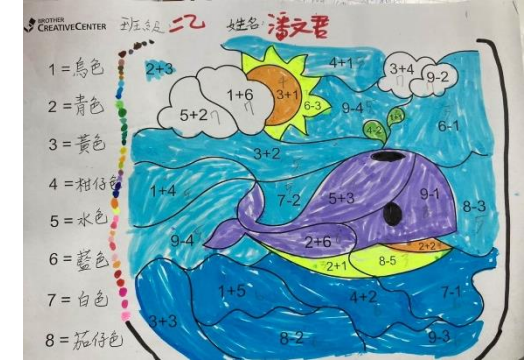 BROTHER
CREATIVECENTER
班級 二乙 姓名 潘文君
1 = 烏色
2 = 青色
3 = 黃色
4 = 柑仔色
5 = 水色
6 = 藍色
7 = 白色
8 = 茄仔色
2+3
4+1
3+4
9-2
1+6
3+1
5+2
6-3
9-4
4-2
1+1
6-1
3+2
1+4
7-2
5+3
9-1
8-3
9-4
2+6
2+2
2+1
8-5
1+5
4+2
7-1
3+3
8-2
9-3